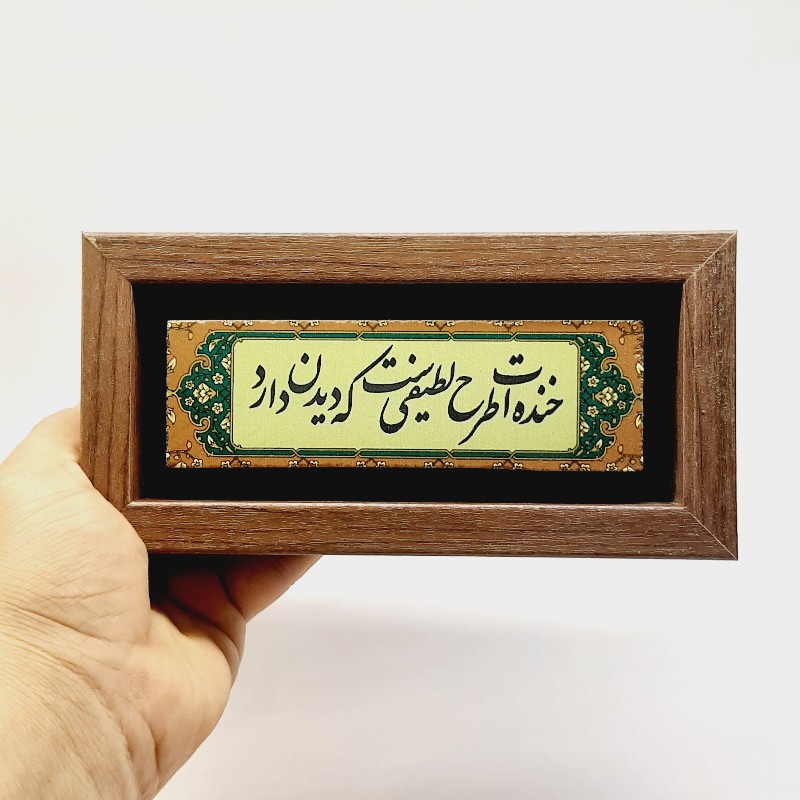 خنده ات طرح لطیفی ست که دیدن دارد